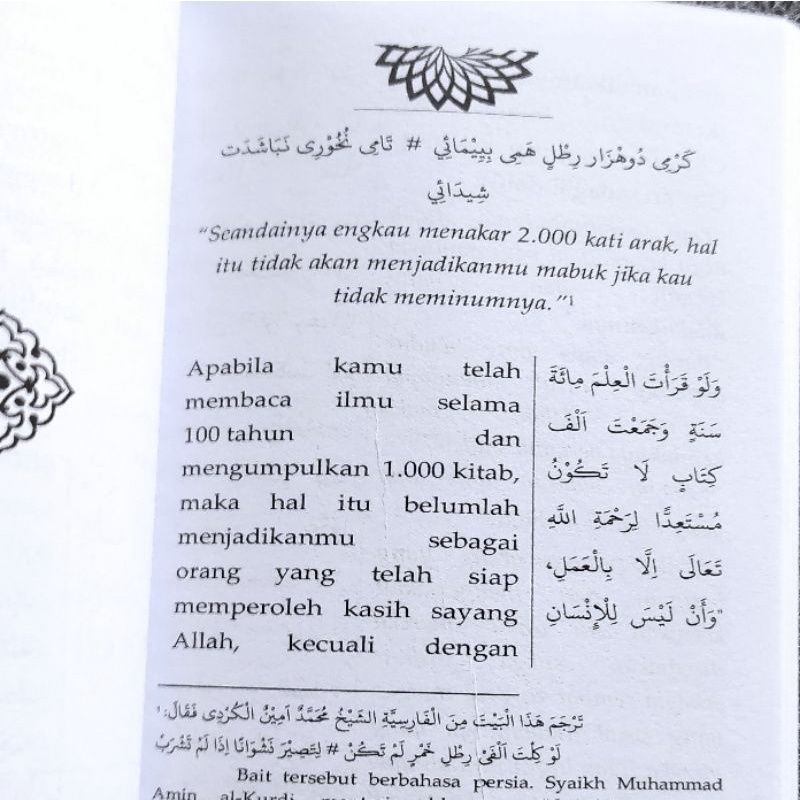 كَرْمِى دُوهْزَار رِطْلِ هَمِى بِيِيْمَائِي # تَامِى نُخُوْرِى نَبَاشَدَت
شِيدَائِي
“Seandainya engkau menakar 2.000 kati arak, hal
itu tidak akan menjadikanmu mabuk jika kau
tidak meminumnya.”¹
Apabila kamu telah
membaca ilmu selama
100 tahun dan
mengumpulkan 1.000 kitab,
maka hal itu belumlah
menjadikanmu sebagai
orang yang telah siap
memperoleh kasih sayang
Allah, kecuali dengan
وَلَوْ قَرَأْتَ الْعِلْمَ مِائَةَ
سَنَةٍ وَجَمَعْتَ اَلْفَ
كِتَابٍ لَا تَكُوْنُ
مُسْتَعِدًّا لِرَحْمَةِ اللَّهِ
تَعَالَى اِلَّا بِالْعَمَلِ،
"وَأَنْ لَيْسَ لِلْإِنْسَانِ
¹ تَرْجَمَ هَذَا الْبَيْتَ مِنَ الْفَارِسِيَّةِ الشَّيْخُ مُحَمَّدٌ اَمِيْنُ الْكُرْدِى فَقَالَ:
لَوْ كِلْتَ اَلْفَيْ رِطْلِ خَمْرٍ لَمْ تَكُنْ # لِتَصِيْرَ نَشْوَانًا إِذَا لَمْ تَشْرَبْ
Bait tersebut berbahasa persia. Syaikh Muhammad
Amin al-Kurdi